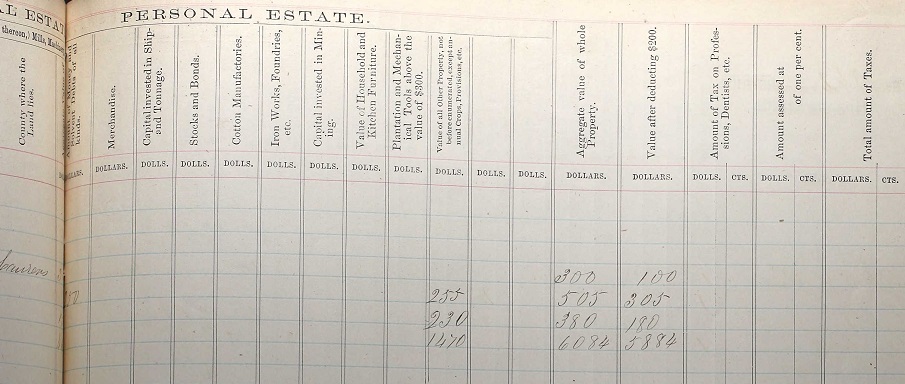 AL ESTAT
PERSONAL ESTATE.
thereon,) Mills, Machin
County where the
Land lies.
Merchandise.
Capital invested in Ship-
and Tounage.
Stocks and Bonds.
Cotton Manufactories.
Iron Works, Foundries,
etc.
Capital invested in Min-
ing.
Value of Household and
Kitchen Furniture.
Plantation and Mechan-
ical Tools above the
value of $300.
Value of all Other Property, not
before enumerated, except an-
nual Crops, Provisions, etc.
Aggregate value of whole
Property.
Value after deducting $200.
Amount of Tax on Profes-
sions, Dentists, etc.
Amount assessed at
of one per cent.
Total amount of Taxes.
DOLLARS. DOLLS. DOLLS. DOLLS. DOLLS. DOLLS. DOLLS. DOLLS. DOLLS. DOLLS. DOLLS. DOLLARS. DOLLARS. DOLLS. CTS. DOLLS. CTS. DOLLARS. CTS.
300 100
255 505 305
230 380 180
1470 6084 5884